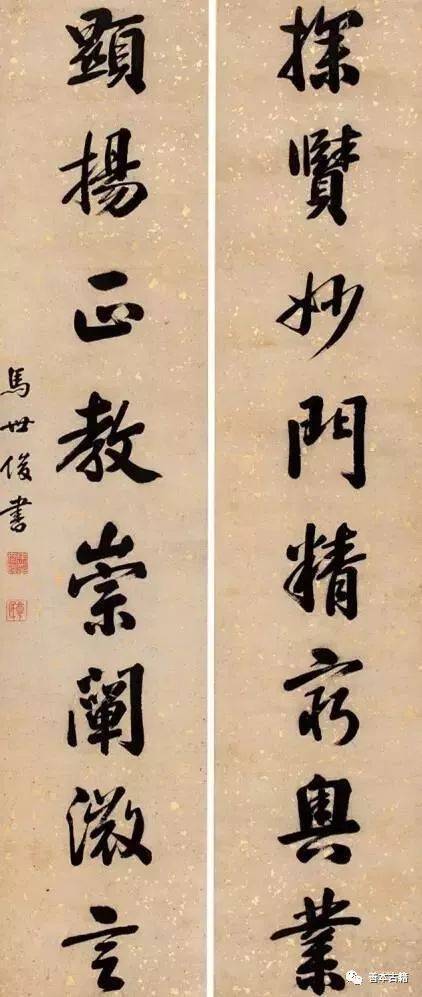 探賾妙門精窮奧業
顯揚正教崇闡微言
馬世俊書
善本古籍